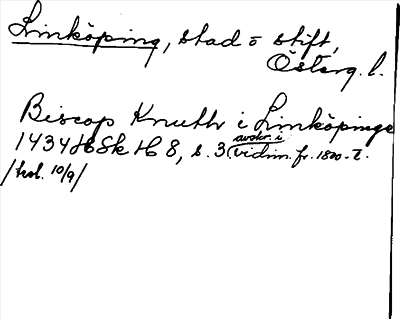 Linköping, stad o stift,
Österg. l.
Biscop Knuth i Linköpinge
1434 HSkH 8, s. 3 (avskr. i
vidim. fr. 1500-t.
/hol. 10/9/